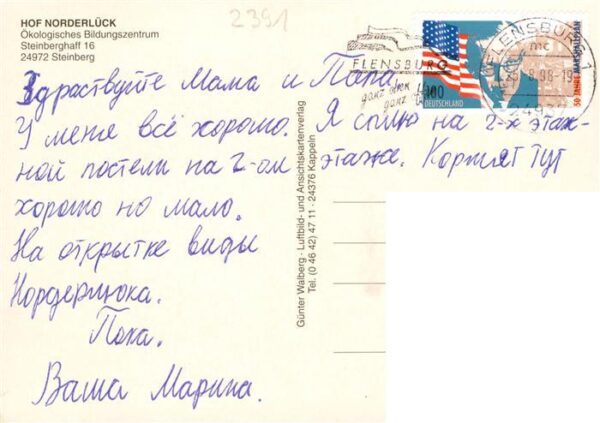 HOF NORDERLÜCK
Ökologisches Bildungszentrum
Steinberghaff 16
24972 Steinberg
2391
Здраствуйте Мама и Папа
У меня всё хорошо. Я сплю на 2-х этаж-
ной постели на 2-ом этаже. Кормят тут
хорошо но мало.
На открытке виды
Нордерлюка.
Пока.
Ваша Марина.
Günter Walberg - Luftbild- und Ansichtskartenverlag
Tel. (0 46 42) 47 11 · 24376 Kappeln
FLENSBURG
ganz oben
ganz
100
DEUTSCHLAND
50 JAHRE MARSHALLPLAN
FLENSBURG 1
mc
8.98-19